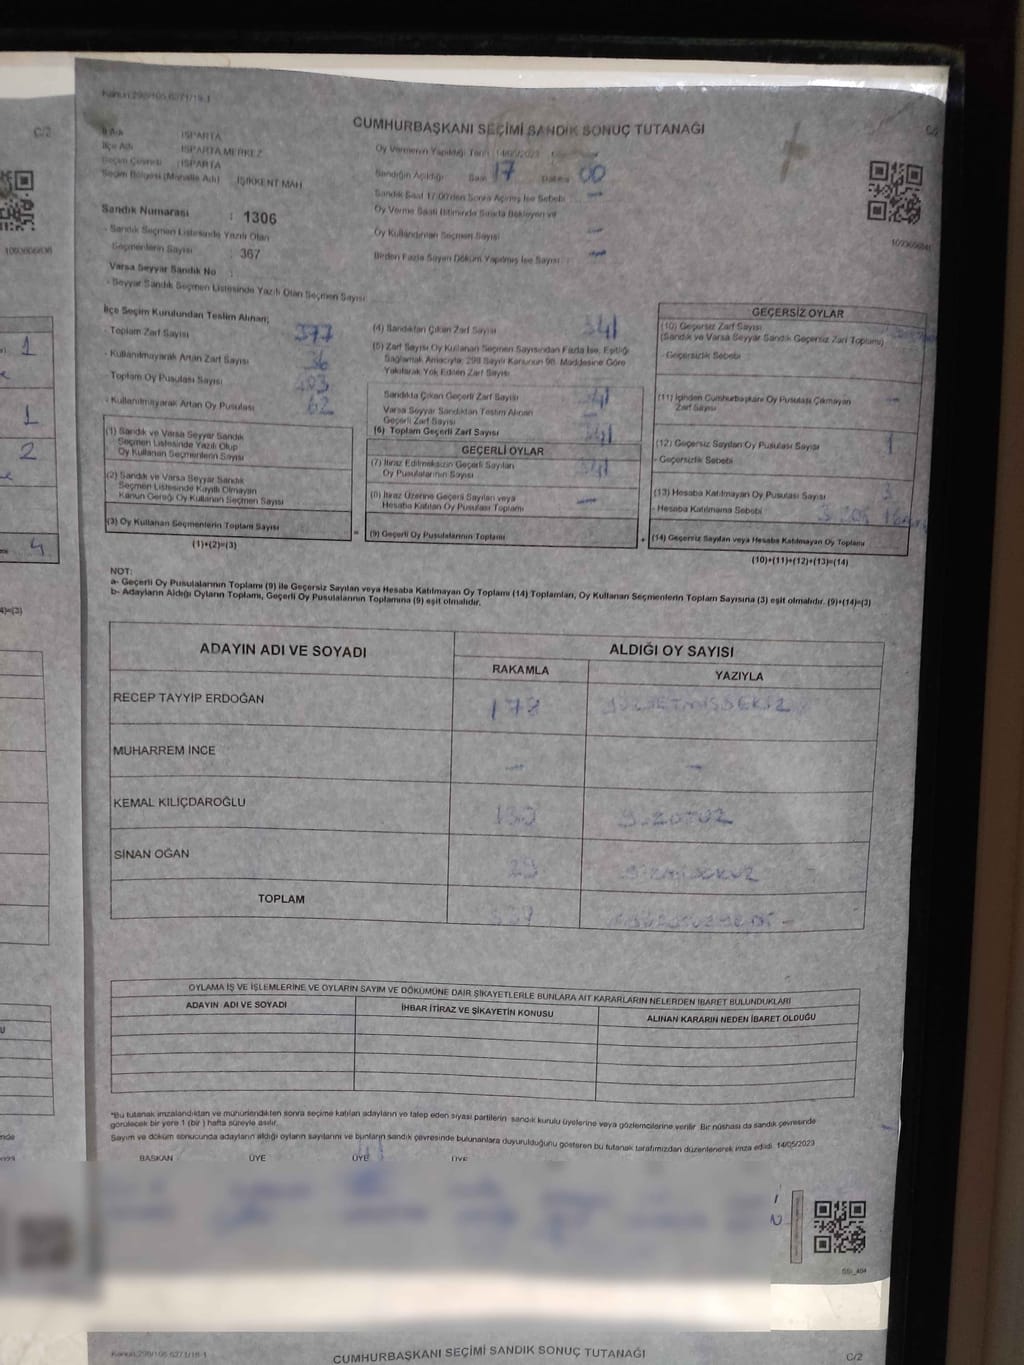 Kanun:298/105 6271/18-1
CUMHURBAŞKANI SEÇİMİ SANDIK SONUÇ TUTANAĞI
C/2
İl Adı : ISPARTA
İlçe Adı : ISPARTA MERKEZ
Seçim Çevresi : ISPARTA
Seçim Bölgesi (Mahalle Adı) : IŞIKKENT MAH
Sandık Numarası : 1306
- Sandık Seçmen Listesinde Yazılı Olan
Seçmenlerin Sayısı : 367
Varsa Seyyar Sandık No :
- Seyyar Sandık Seçmen Listesinde Yazılı Olan Seçmen Sayısı
Oy Vermenin Yapıldığı Tarih : 14/05/2023
Sandığın Açıldığı Saat 17 Dakika 00
Sandık Saat 17.00'den Sonra Açılmış İse Sebebi -
Oy Verme Saati Bitiminde Sırada Bekleyen ve
Oy Kullandırılan Seçmen Sayısı -
Birden Fazla Sayım Döküm Yapılmış İse Sayısı : -
İlçe Seçim Kurulundan Teslim Alınan;
- Toplam Zarf Sayısı 377
- Kullanılmayarak Artan Zarf Sayısı 36
Toplam Oy Pusulası Sayısı 403
- Kullanılmayarak Artan Oy Pusulası 62
(1) Sandık ve Varsa Seyyar Sandık
Seçmen Listesinde Yazılı Olup
Oy Kullanan Seçmenlerin Sayısı
(2) Sandık ve Varsa Seyyar Sandık
Seçmen Listesinde Kayıtlı Olmayan
Kanun Gereği Oy Kullanan Seçmen Sayısı
(3) Oy Kullanan Seçmenlerin Toplam Sayısı
(1)+(2)=(3)
(4) Sandıktan Çıkan Zarf Sayısı 341
(5) Zarf Sayısı Oy Kullanan Seçmen Sayısından Fazla İse, Eşitliği
Sağlamak Amacıyla, 298 Sayılı Kanunun 98. Maddesine Göre
Yakılarak Yok Edilen Zarf Sayısı
Sandıkta Çıkan Geçerli Zarf Sayısı 341
Varsa Seyyar Sandıktan Teslim Alınan
Geçerli Zarf Sayısı -
(6) Toplam Geçerli Zarf Sayısı 341
GEÇERLİ OYLAR
(7) İtiraz Edilmeksizin Geçerli Sayılan
Oy Pusulalarının Sayısı 341
(8) İtiraz Üzerine Geçerli Sayılan veya
Hesaba Katılan Oy Pusulası Toplamı -
(9) Geçerli Oy Pusulalarının Toplamı
GEÇERSİZ OYLAR
(10) Geçersiz Zarf Sayısı
(Sandık ve Varsa Seyyar Sandık Geçersiz Zarf Toplamı)
- Geçersizlik Sebebi
(11) İçinden Cumhurbaşkanı Oy Pusulası Çıkmayan
Zarf Sayısı -
(12) Geçersiz Sayılan Oy Pusulası Sayısı 1
- Geçersizlik Sebebi
(13) Hesaba Katılmayan Oy Pusulası Sayısı 3
- Hesaba Katılmama Sebebi
(14) Geçersiz Sayılan veya Hesaba Katılmayan Oy Toplamı
(10)+(11)+(12)+(13)=(14)
NOT:
a- Geçerli Oy Pusulalarının Toplamı (9) ile Geçersiz Sayılan veya Hesaba Katılmayan Oy Toplamı (14) Toplamları, Oy Kullanan Seçmenlerin Toplam Sayısına (3) eşit olmalıdır. (9)+(14)=(3)
b- Adayların Aldığı Oyların Toplamı, Geçerli Oy Pusulalarının Toplamına (9) eşit olmalıdır.
ADAYIN ADI VE SOYADI
ALDIĞI OY SAYISI
RAKAMLA YAZIYLA
RECEP TAYYİP ERDOĞAN 178 YÜZYETMİŞSEKİZ
MUHARREM İNCE - -
KEMAL KILIÇDAROĞLU 130 YÜZOTUZ
SİNAN OĞAN 29 YİRMİDOKUZ
TOPLAM 337
OYLAMA İŞ VE İŞLEMLERİNE VE OYLARIN SAYIM VE DÖKÜMÜNE DAİR ŞİKAYETLERLE BUNLARA AİT KARARLARIN NELERDEN İBARET BULUNDUKLARI
ADAYIN ADI VE SOYADI İHBAR İTİRAZ VE ŞİKAYETİN KONUSU ALINAN KARARIN NEDEN İBARET OLDUĞU
*Bu tutanak imzalandıktan ve mühürlendikten sonra seçime katılan adayların ve talep eden siyasi partilerin sandık kurulu üyelerine veya gözlemcilerine verilir. Bir nüshası da sandık çevresinde
görülecek bir yere 1 (bir ) hafta süreyle asılır.
Sayım ve döküm sonucunda adayların aldığı oyların sayılarını ve bunların sandık çevresinde bulunanlara duyurulduğunu gösteren bu tutanak tarafımızdan düzenlenerek imza edildi. 14/05/2023
BAŞKAN ÜYE ÜYE ÜYE
Kanun:298/105 6271/18-1
CUMHURBAŞKANI SEÇİMİ SANDIK SONUÇ TUTANAĞI
C/2